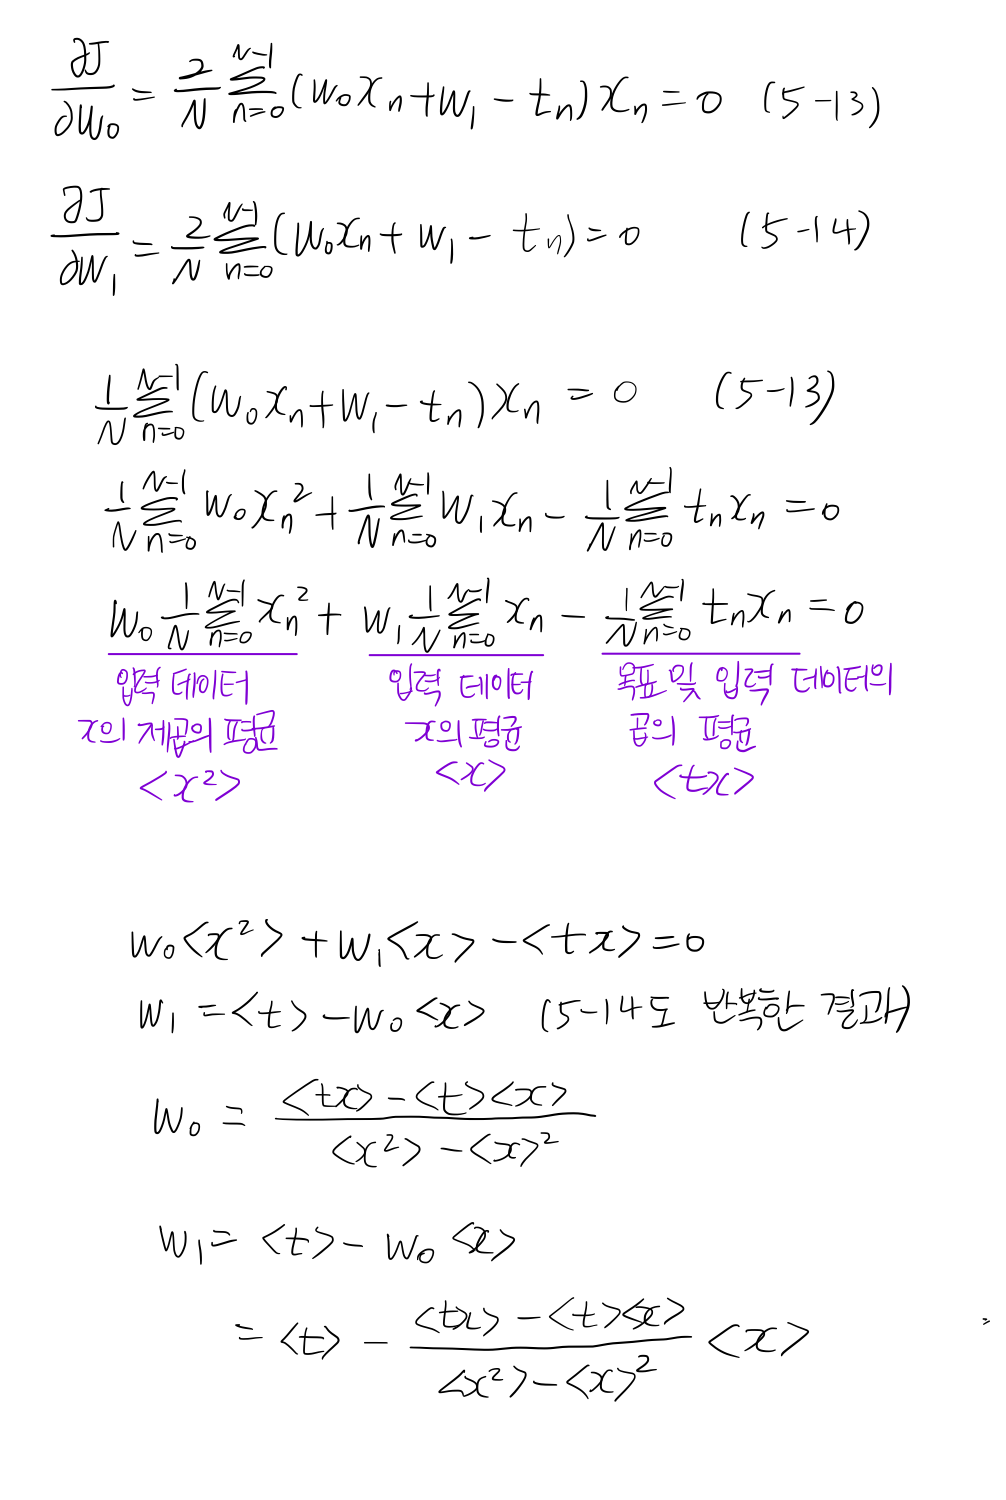 ∂J/∂w₀ = 2/N Σₙ₌₀ᴺ⁻¹ (w₀xₙ + w₁ − tₙ)xₙ = 0 (5-13)
∂J/∂w₁ = 2/N Σₙ₌₀ᴺ⁻¹ (w₀xₙ + w₁ − tₙ) = 0 (5-14)
1/N Σₙ₌₀ᴺ⁻¹ (w₀xₙ + w₁ − tₙ)xₙ = 0 (5-13)
1/N Σₙ₌₀ᴺ⁻¹ w₀xₙ² + 1/N Σₙ₌₀ᴺ⁻¹ w₁xₙ − 1/N Σₙ₌₀ᴺ⁻¹ tₙxₙ = 0
w₀ 1/N Σₙ₌₀ᴺ⁻¹ xₙ² + w₁ 1/N Σₙ₌₀ᴺ⁻¹ xₙ − 1/N Σₙ₌₀ᴺ⁻¹ tₙxₙ = 0
입력 데이터
x의 제곱의 평균
<x²>
입력 데이터
x의 평균
<x>
목표 및 입력 데이터의
곱의 평균
<tx>
w₀<x²> + w₁<x> − <tx> = 0
w₁ = <t> − w₀<x> (5-14도 반복한 결과)
w₀ = (<tx> − <t><x>) / (<x²> − <x>²)
w₁ = <t> − w₀<x>
= <t> − (<tx> − <t><x>) / (<x²> − <x>²) <x>